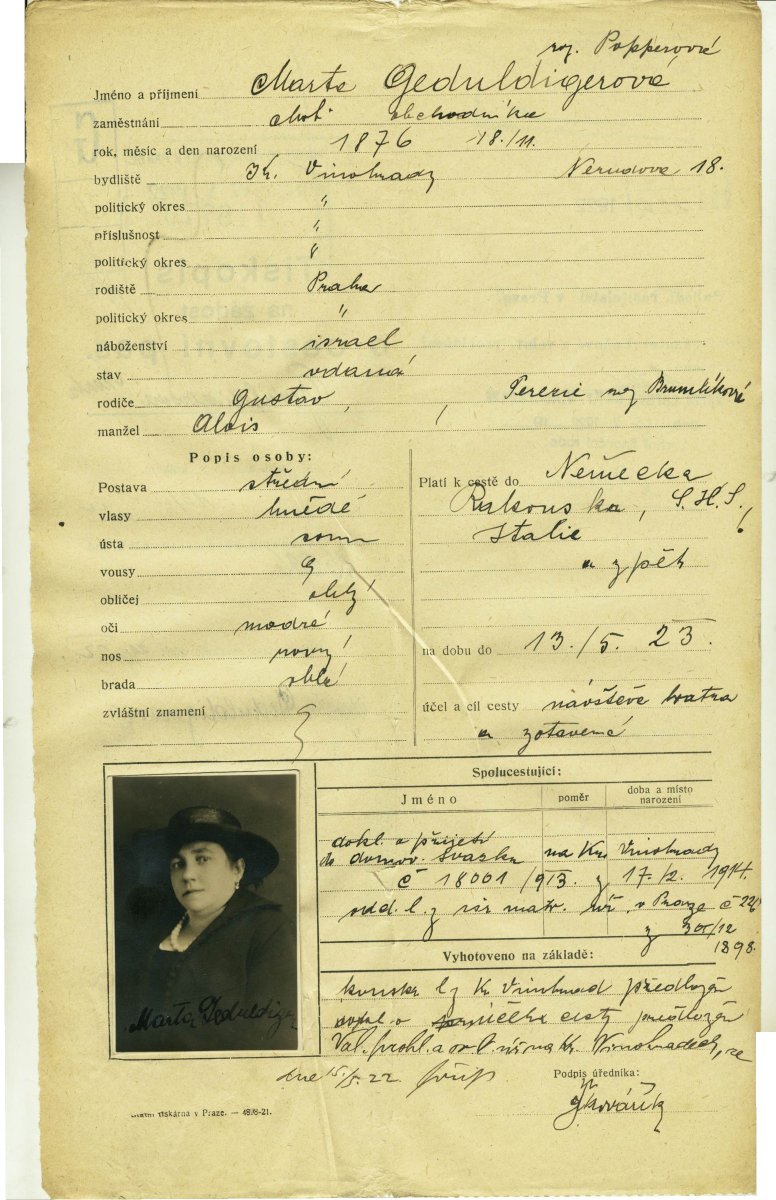 roz. Popperová
Jméno a příjmení Marta Geduldigerová
zaměstnání choť obchodníka
rok, měsíc a den narození 1876 18./11.
bydliště Kr. Vinohrady Nerudova 18.
politický okres "
příslušnost "
politický okres "
rodiště Praha
politický okres "
náboženství israel
stav vdaná
rodiče Gustav, Terezie roz Brumlíkové
manžel Alois
Popis osoby:
Postava střední
vlasy hnědé
ústa soum
vousy
obličej oblý
oči modré
nos rovný
brada oblá
zvláštní znamení
Platí k cestě do Německa
Rakouska, S.H.S.,
Italie
a zpět
na dobu do 13./5. 23.
účel a cíl cesty návštěva bratra
a zotavená
Spolucestující:
Jméno poměr doba a místo narození
dokl. o přijetí
do domov. svazku na Kr. Vinohrady
č 18001/913. z 17./2. 1914.
odd. l. z isr matr. v Praze č
z 30/12
1898.
Vyhotoveno na základě:
konskr. l z Kr Vinohrad předložen
dokl. o cesty předložen
Val. prohl. a na Kr. Vinohradech,
dne 15./5. 22.
Podpis úředníka:
Marta Geduldiger
Státní tiskárna v Praze. — 4898-21.